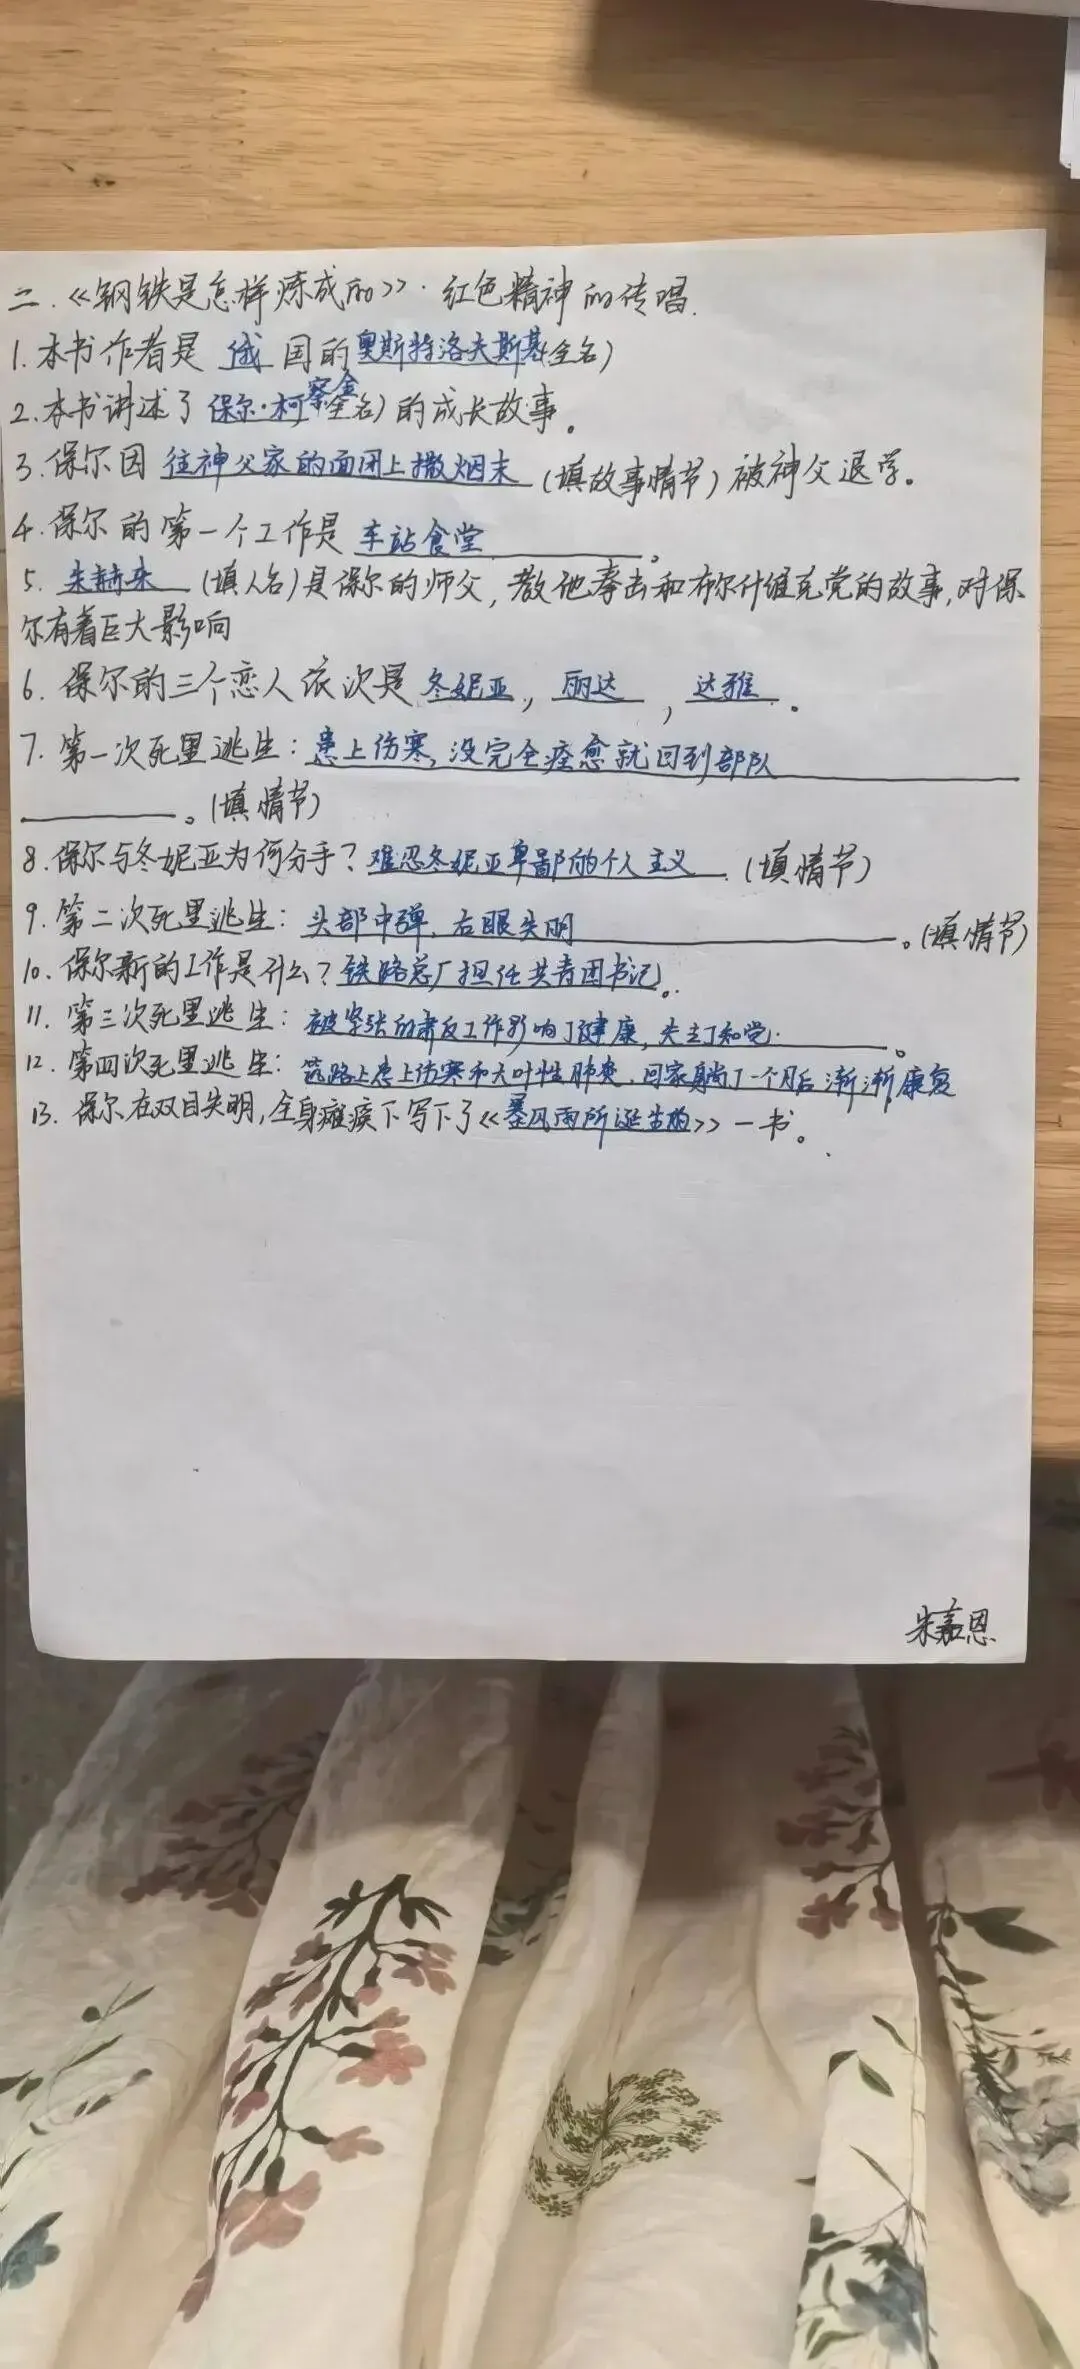 二.《钢铁是怎样炼成的》·红色精神的传唱.
1.本书作者是 俄 国的奥斯特洛夫斯基(全名)
2.本书讲述了 保尔·柯察金(全名)的成长故事。
3.保尔因 往神父家的面团上撒烟末 (填故事情节)被神父退学。
4.保尔的第一个工作是 车站食堂。
5. 朱赫来 (填人名)是保尔的师父,教他拳击和布尔什维克党的故事,对保
尔有着巨大影响
6.保尔的三个恋人依次是 冬妮亚,丽达,达雅.
7.第一次死里逃生:患上伤寒,没完全痊愈就回到部队
。(填情节)
8.保尔与冬妮亚为何分手?难忍冬妮亚卑鄙的个人主义.(填情节)
9.第二次死里逃生:头部中弹,右眼失明。(填情节)
10.保尔新的工作是什么?铁路总厂担任共青团书记。
11.第三次死里逃生:被紧张的肃反工作影响了健康,失去了知觉.。
12.第四次死里逃生:筑路上患上伤寒和大叶性肺炎,回家躺了一个月后渐渐康复
13.保尔在双目失明,全身瘫痪下写下了《暴风雨所诞生的》一书。
朱嘉恩